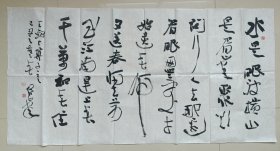 水是眼波横山
是眉峰聚欲
问行人去那边
眉眼盈盈处才
始送春归
又送君归去若
到江南赶上春
千万和春住